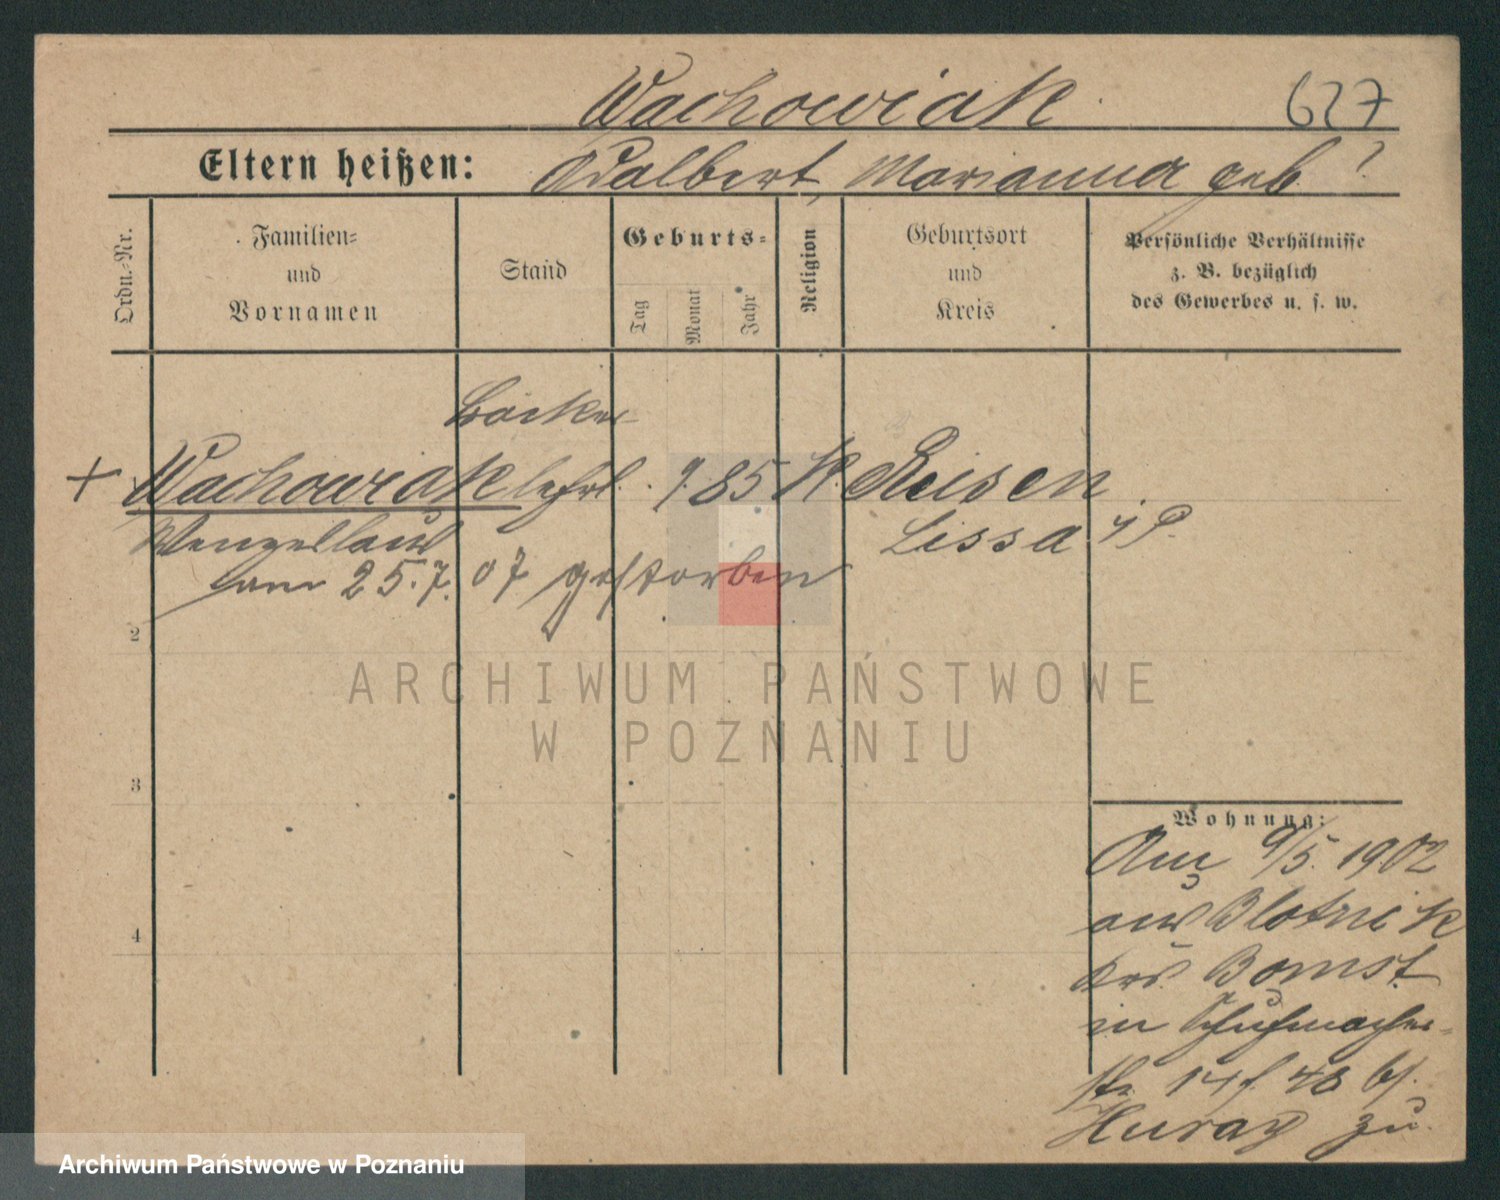 Wachowiak. 627
Eltern heißen: Adalbert, Marianna geb ?
Ordn.-Nr.
Familien-
und
Vornamen
Stand
Geburts-
Tag
Monat
Jahr
Religion
Geburtsort
und
Kreis
Persönliche Verhältnisse
z. B. bezüglich
des Gewerbes u. s. w.
Bäcker
+ Wachowiak lehrl. 9. 85 K. Reisen
Wenzellaus Lissa i/P.
am 25.7.07 gestorben
2
3
4
Wohnung:
Am 9/5. 1902
aus Blotnik
Krs. Bomst
in Schuhmacher-
str. 48 bei
zu.
ARCHIWUM PAŃSTWOWE
W POZNANIU
Archiwum Państwowe w Poznaniu